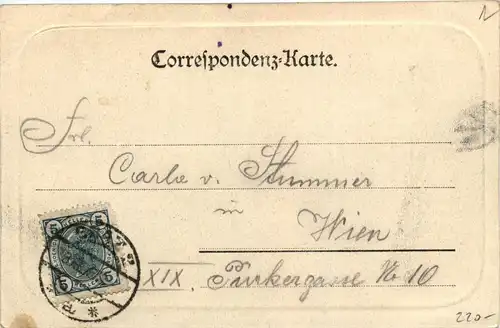 N
Correspondenz-Karte.
Frl.
Carla v. Stummer
in
Wien
XIX. Pyrkergasse No 10
5 5
5 5
220-